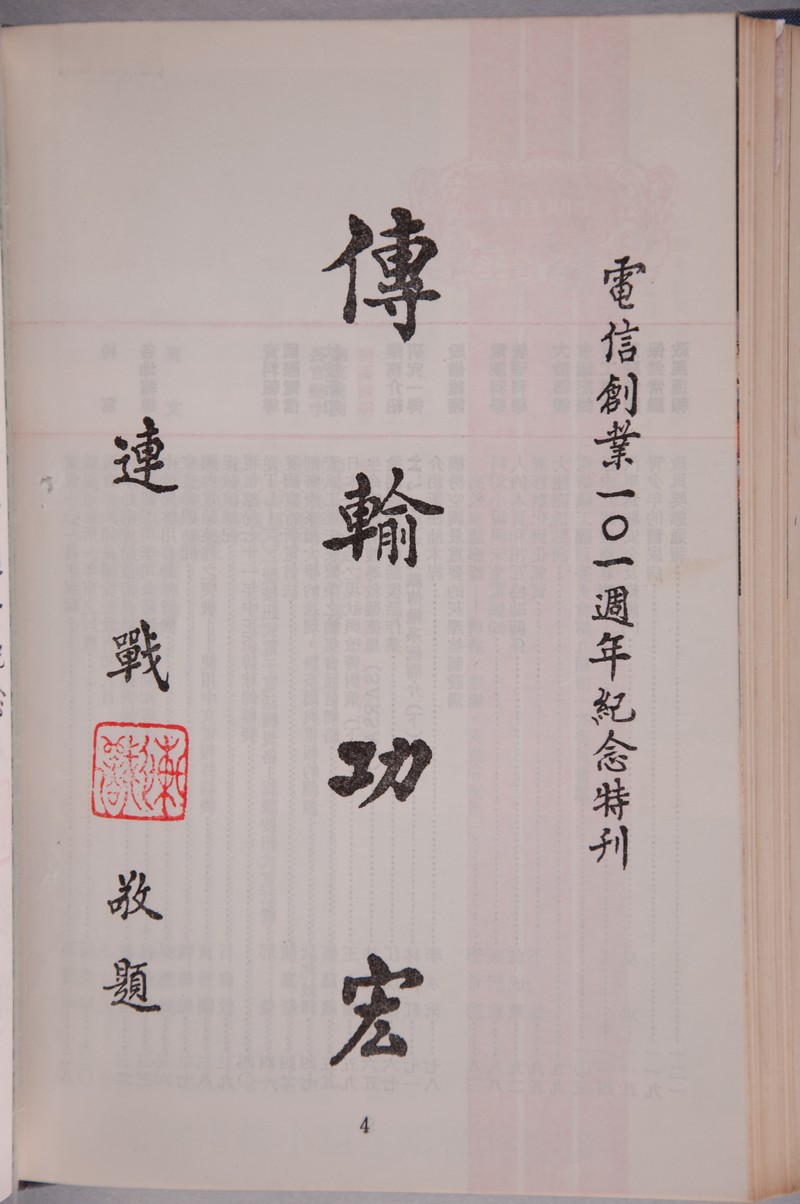 電信創業一〇一週年紀念特刊
傳輸功宏
連戰
敬題
4